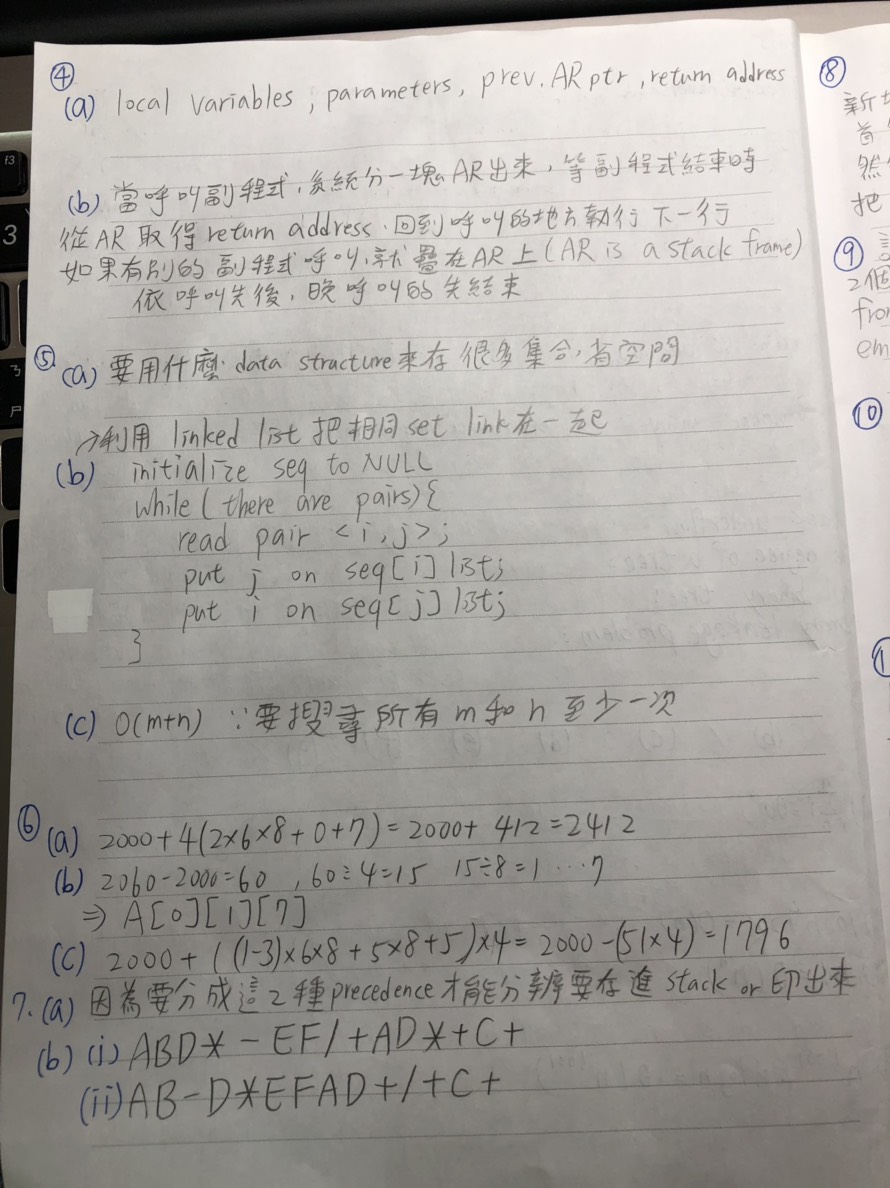 ④
(a) local variables, parameters, prev. AR ptr, return address
(b) 當呼叫副程式,系統分一塊AR出來,等副程式結束時
從AR取得return address.回到呼叫的地方執行下一行
如果有別的副程式呼叫,就疊在AR上(AR is a stack frame)
依呼叫先後,晚呼叫的先結束
⑤
(a) 要用什麼 data structure來存很多集合,省空間
→利用 linked list 把相同set link在一起
(b) initialize seq to NULL
while(there are pairs){
read pair <i,j>;
put j on seq[i] list;
put i on seq[j] list;
}
(c) O(m+n) ∵要搜尋所有m和n至少一次
⑥
(a) 2000+4(2×6×8+0+7)=2000+412=2412
(b) 2060-2000=60 ,60÷4=15 15÷8=1…7
⇒ A[0][1][7]
(c) 2000+((1-3)×6×8+5×8+5)×4=2000-(51×4)=1796
7. (a) 因為要分成這2種precedence才能分辨要存進stack or 印出來
(b) (i) ABD*-EF/+AD*+C+
(ii) AB-D*EFAD+/+C+
⑧
新
首
然
把
⑨
2個
em
⑩